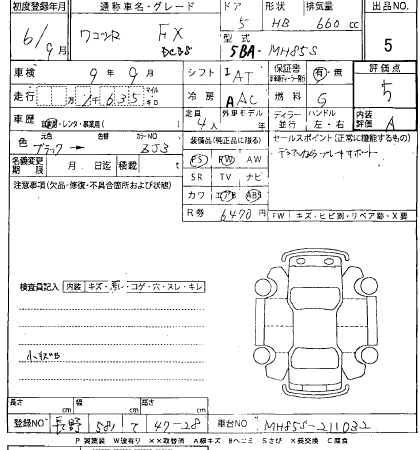 初度登録年月 通称車名・グレード ドア 形状 排気量 出品NO
6/9月 ワゴンR FX 5 HB 660cc 5
DCBS 型式 5BA-MH85S
車検 9年9月 シフト IAT 保証書 有・無 評価点
走行 万 1千635 マイル キロ 冷房 AAC 燃料 G 5
車歴 自家用・レンタ・事業用( ) 定員 4人 外車モデル ディーラー 並行 ハンドル 左・右 内装評価 A
元色 色替 カラーNO 装備品(純正品に限る) セールスポイント(正常に機能するもの)
色 ブラック ZJ3 PS PW AW
名義変更期限 月 日迄 積載 t SR TV ナビ
注意事項(欠品・修復・不具合箇所および状態) カワ エアB ABS
R券 6470円 FW キズ・ヒビ割・リペア跡・X要
検査員記入 内装 キズ・汚レ・コゲ・穴・スレ・キレ
小キズB
長さ cm 幅 cm 高さ cm
登録NO 長野 581 て 47-28 車台NO MH85S-211032
P 要塗装 W 波有り XX 取替済 A 線キズ B ヘコミ S さび X 要交換 C 腐食